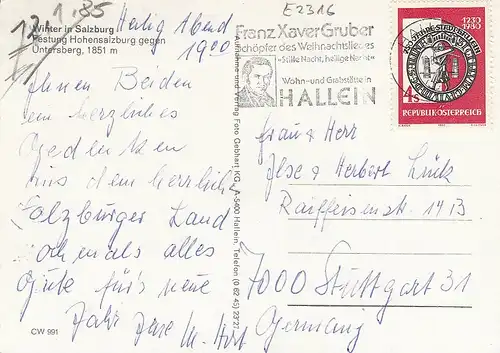 12.1.85
E2316
Heilig Abend
1900
Winter in Salzburg
Festung Hohensalzburg gegen
Untersberg, 1851 m
Ihnen Beiden
ein herzliches
Gedenken
aus dem herrlichen
Salzburger Land
nochmals alles
Gute für's neue
Jahr
CW 991
Verlag Foto Gebhart KG, A-5400 Hallein, Telefon (0 62 45) 23 27
Franz Xaver Gruber
Schöpfer des Weihnachtsliedes
»Stille Nacht, heilige Nacht«
Wohn- und Grabstätte in
HALLEIN
1233
1983
4 S
REPUBLIK ÖSTERREICH
Frau & Herr
Ilse & Herbert Lück
Raiffeisenstr. 14 B
7000 Stuttgart 31
Germany